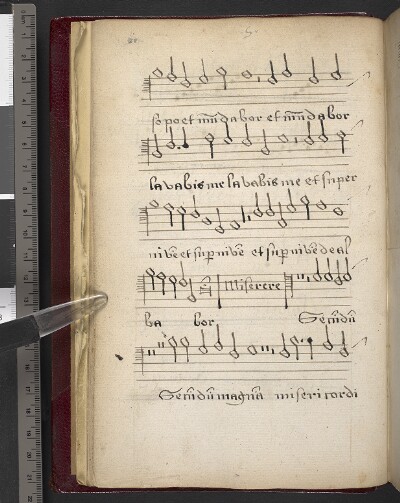 so po et mūdabor et mūdabor
lavabis me lavabis me et super
nivē et sup nivē et sup nivē deal
Miserere
ba bor Secūdū
Secūdū magnā misericordi